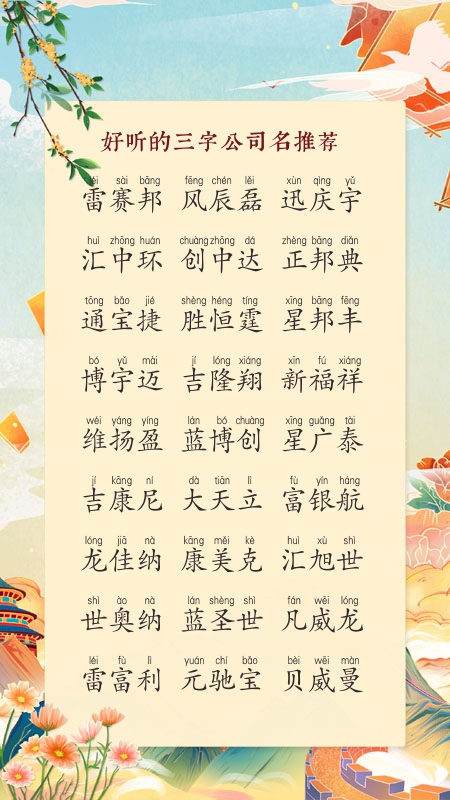 好听的三字公司名推荐
léi sài bāng fēng chén lěi xùn qìng yǔ
雷赛邦 风辰磊 迅庆宇
huì zhōng huán chuàng zhōng dá zhèng bāng diǎn
汇中环 创中达 正邦典
tōng bǎo jié shèng héng tíng xīng bāng fēng
通宝捷 胜恒霆 星邦丰
bó yǔ mài jí lóng xiáng xīn fú xiáng
博宇迈 吉隆翔 新福祥
wéi yáng yíng lán bó chuàng xīng guǎng tài
维扬盈 蓝博创 星广泰
jí kāng ní dà tiān lì fù yín háng
吉康尼 大天立 富银航
lóng jiā nà kāng měi kè huì xù shì
龙佳纳 康美克 汇旭世
shì ào nà lán shèng shì fán wēi lóng
世奥纳 蓝圣世 凡威龙
léi fù lì yuán chí bǎo bèi wēi màn
雷富利 元驰宝 贝威曼